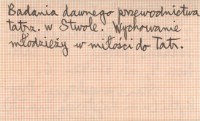 Badania dawnego przewodnictwa
tatrz. w Stwole. Wychowanie
młodzieży w miłości do Tatr.